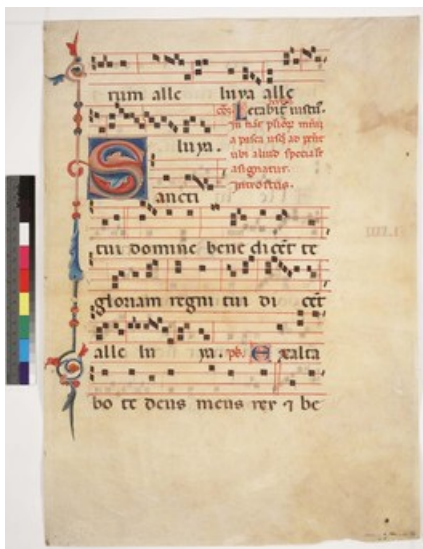 rum alle lu ya alle
Letabit iustus
lu ya.
a pasca usq ad
ubi aliud speciale
asignatur.
introitus.
Sancti
tui domine bene dicēt te
gloriam regni tui di cēt
alle lu ya. ps. Exalta
bo te deus meus rex ⁊ be